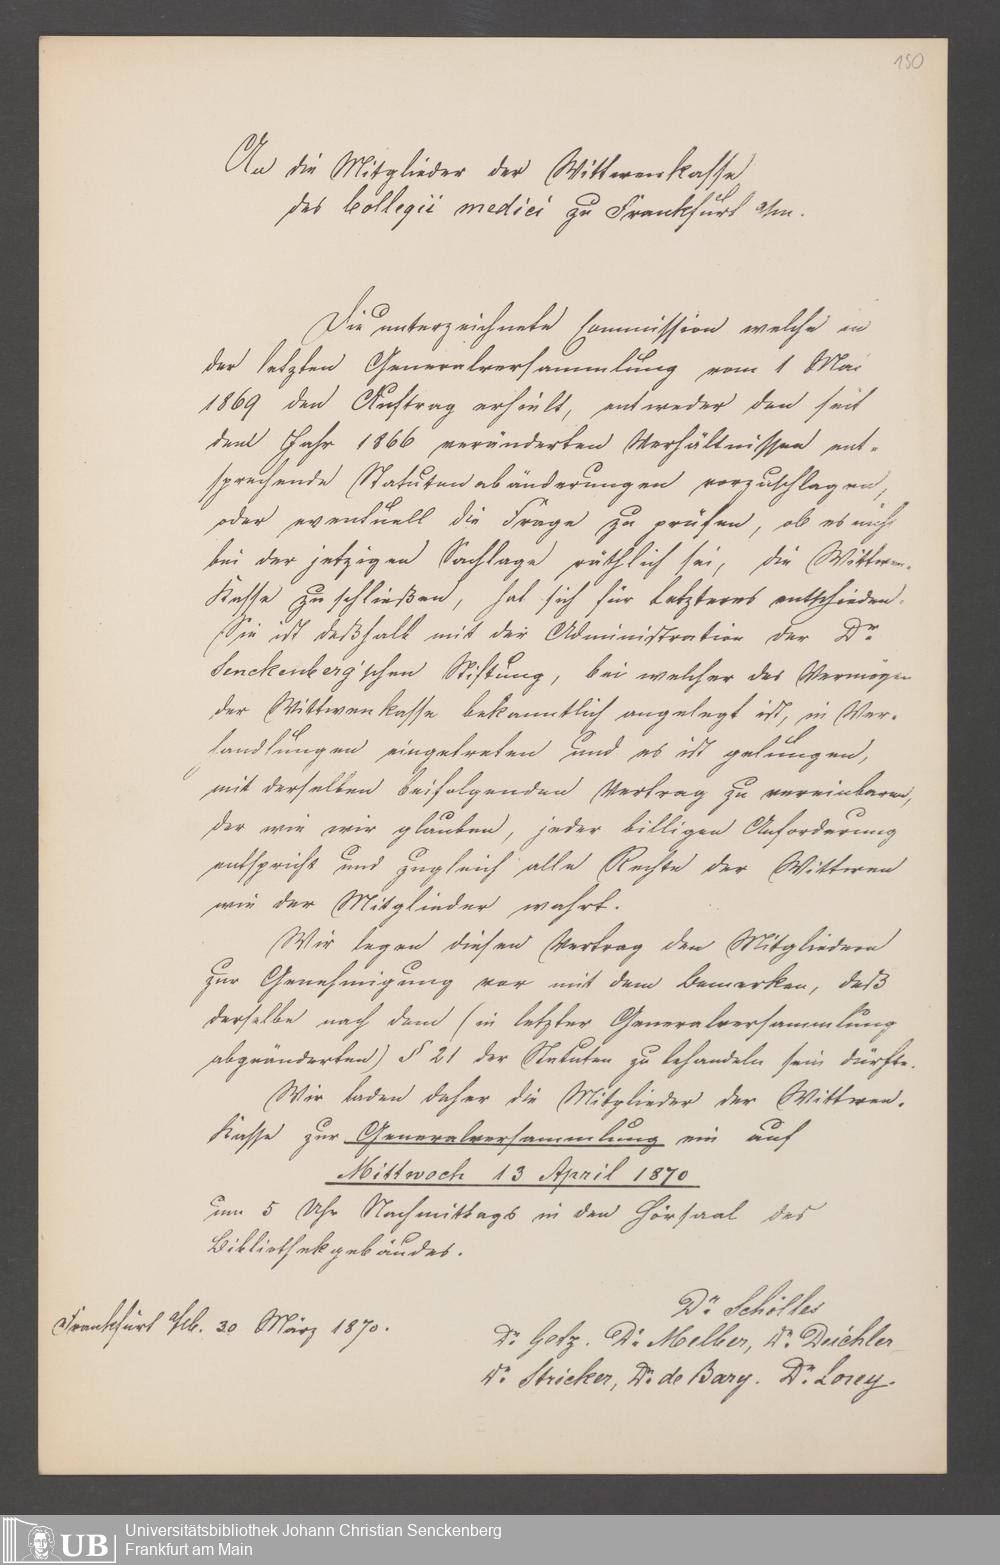 150
An die Mitglieder der Wittwenkasse
des Collegii medici zu Frankfurt a/m.
Die unterzeichnete Commission welche in
der letzten Generalversammlung vom 1 Mai
1869 den Auftrag erhielt, entweder den seit
dem Jahr 1866 veränderten Verhältnissen ent-
sprechende Statutenabänderungen vorzuschlagen,
oder eventuell die Frage zu prüfen, ob es nicht
bei der jetzigen Sachlage räthlich sei, die Wittwen-
Kasse zu schließen, hat sich für Letzteres entschieden.
Sie ist deßhalb mit der Administration der Dr.
Senckenberg'schen Stiftung, bei welcher das Vermögen
der Wittwenkasse bekanntlich angelegt ist, in Ver-
handlungen eingetreten und es ist gelungen,
mit derselben beifolgenden Vertrag zu vereinbaren,
der wie wir glauben, jeder billigen Anforderung
entspricht und zugleich alle Rechte der Wittwen
wie der Mitglieder wahrt.
Wir legen diesen Vertrag den Mitgliedern
zur Genehmigung vor mit dem Bemerken, daß
derselbe nach dem (in letzter Generalversammlung
abgeänderten) § 21 der Statuten zu behandeln sein dürfte.
Wir laden daher die Mitglieder der Wittwen-
Kasse zur Generalversammlung ein auf
Mittwoch 13 April 1870
um 5 Uhr Nachmittags in den Hörsaal des
Bibliothekgebäudes.
Frankfurt a/M. 30 März 1870.
Dr. Schölles
Dr. Getz. Dr. Melber, Dr. Deichler
Dr. Stricker, Dr. de Bary. Dr. Lorey.
UB
Universitätsbibliothek Johann Christian Senckenberg
Frankfurt am Main